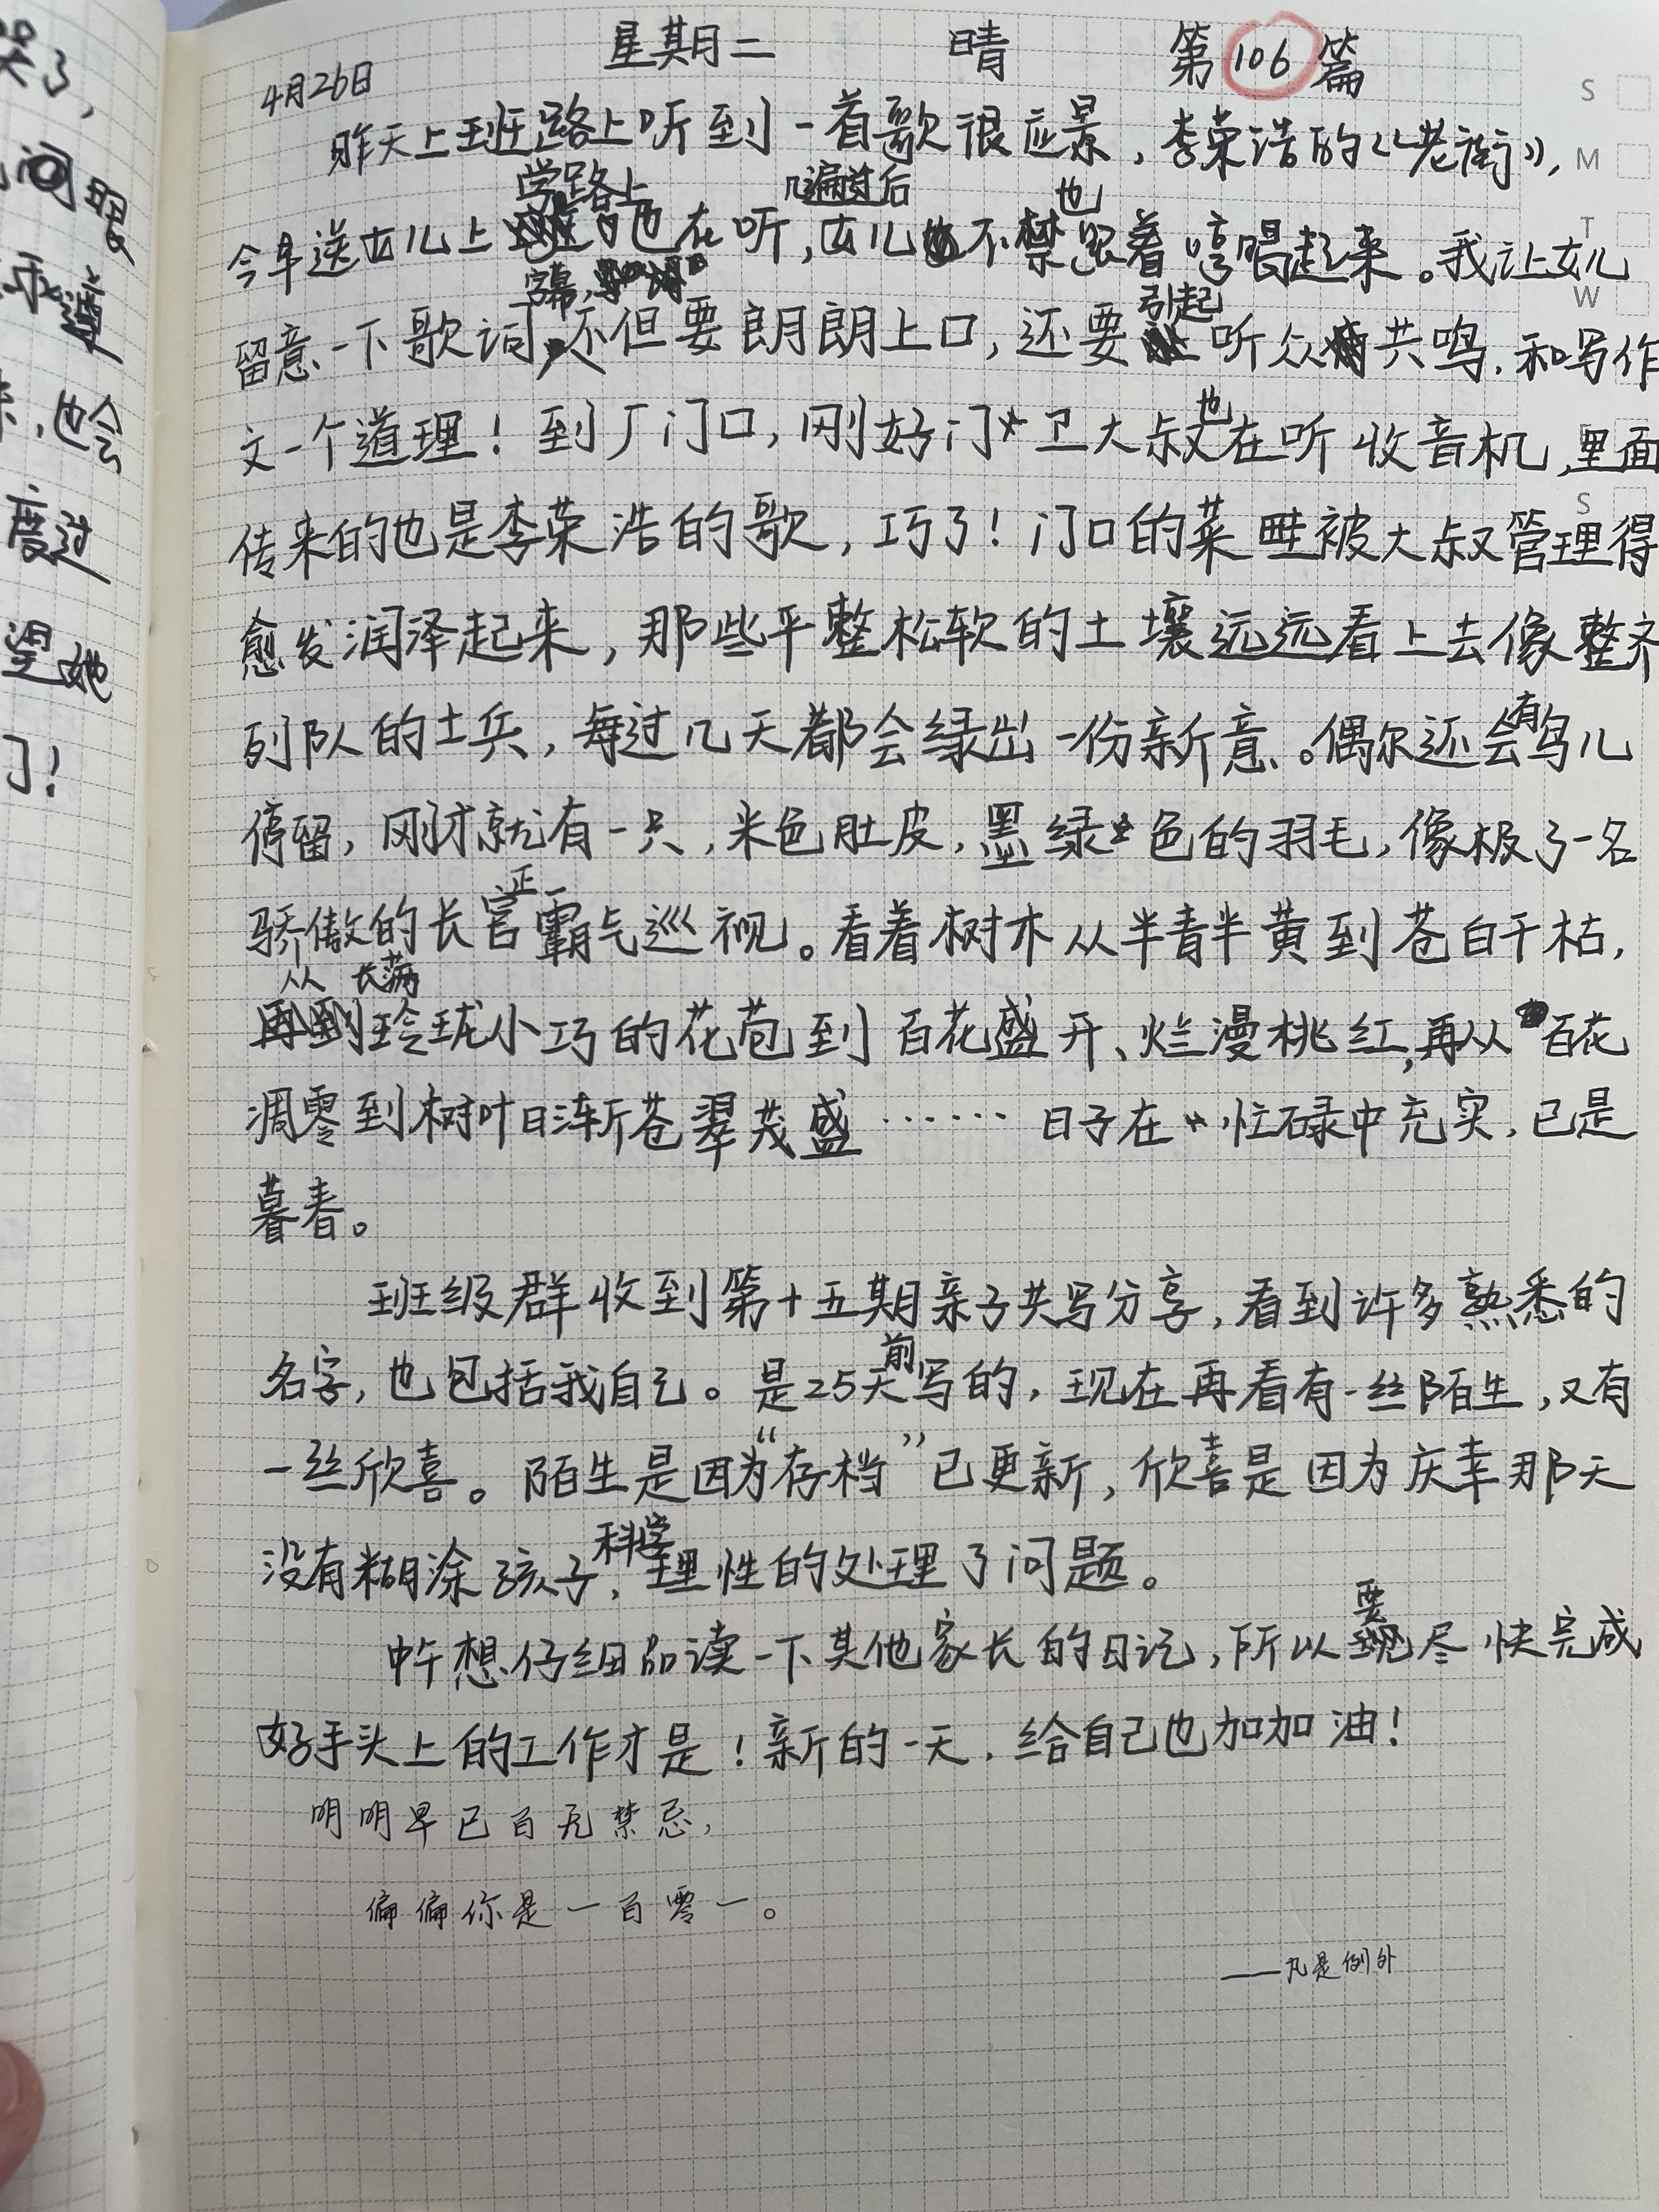 星期二 晴 第106篇
4月26日
昨天上班路上听到一首歌很应景，李荣浩的《老街》，
今早送女儿上学路上也在听，几遍过后女儿也不禁跟着哼唱起来。我让女儿
留意一下歌词字幕，不但要朗朗上口，还要引起听众共鸣，和写作
文一个道理！到厂门口，刚好门卫大叔也在听收音机，里面
传来的也是李荣浩的歌，巧了！门口的菜畦被大叔管理得
愈发润泽起来，那些平整松软的土壤远远看上去像整齐
列队的士兵，每过几天都会绿出一份新意。偶尔还会有鸟儿
停留，刚才就有一只，米色肚皮，墨绿色的羽毛，像极了一名
骄傲的长官正霸气巡视。看着树木从半青半黄到苍白干枯，
从长满玲珑小巧的花苞到百花盛开、烂漫桃红，再从百花
凋零到树叶日渐苍翠茂盛……日子在忙碌中充实，已是
暮春。
班级群收到第十五期亲子共写分享，看到许多熟悉的
名字，也包括我自己。是25天前写的，现在再看有一丝陌生，又有
一丝欣喜。陌生是因为“存档”已更新，欣喜是因为庆幸那天
没有糊涂孩子，科学理性的处理了问题。
中午想仔细品读一下其他家长的日记，所以要尽快完成
好手头上的工作才是！新的一天，给自己也加加油！
明明早已百无禁忌，
偏偏你是一百零一。
——凡是例外
哭了，
间跟
乖
来，也会
度过
望她
了！
S
M
T
W
S